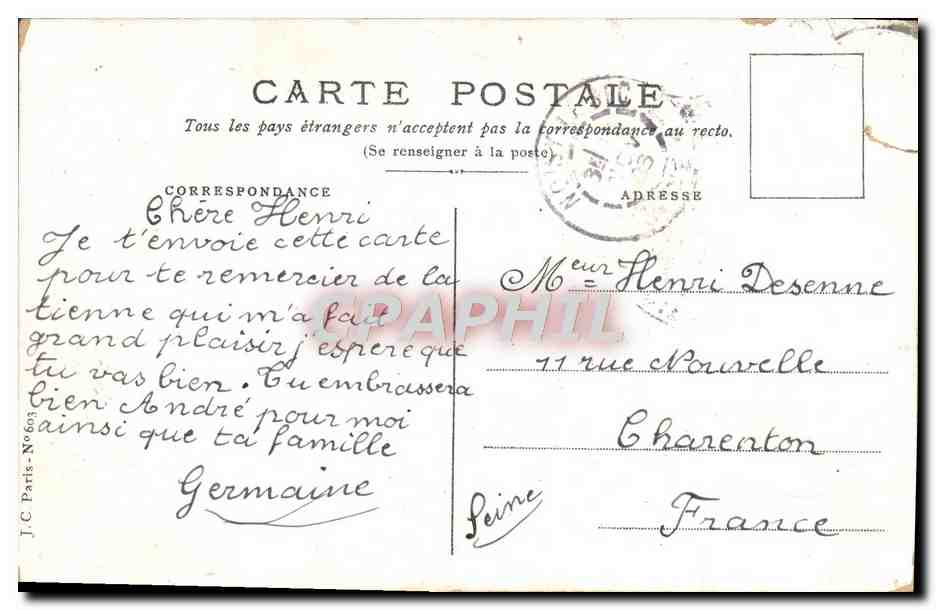 CARTE POSTALE
Tous les pays étrangers n'acceptent pas la correspondance au recto.
(Se renseigner à la poste)
CORRESPONDANCE
Chère Henri
Je t'envoie cette carte
pour te remercier de la
tienne qui m'a fait
grand plaisir j'espere que
tu vas bien. Tu embrassera
bien André pour moi
ainsi que ta famille
Germaine
J.C Paris - N° 603
ADRESSE
Meur Henri Desenne
11 rue Nouvelle
Charenton
Seine
France
CPAPHIL